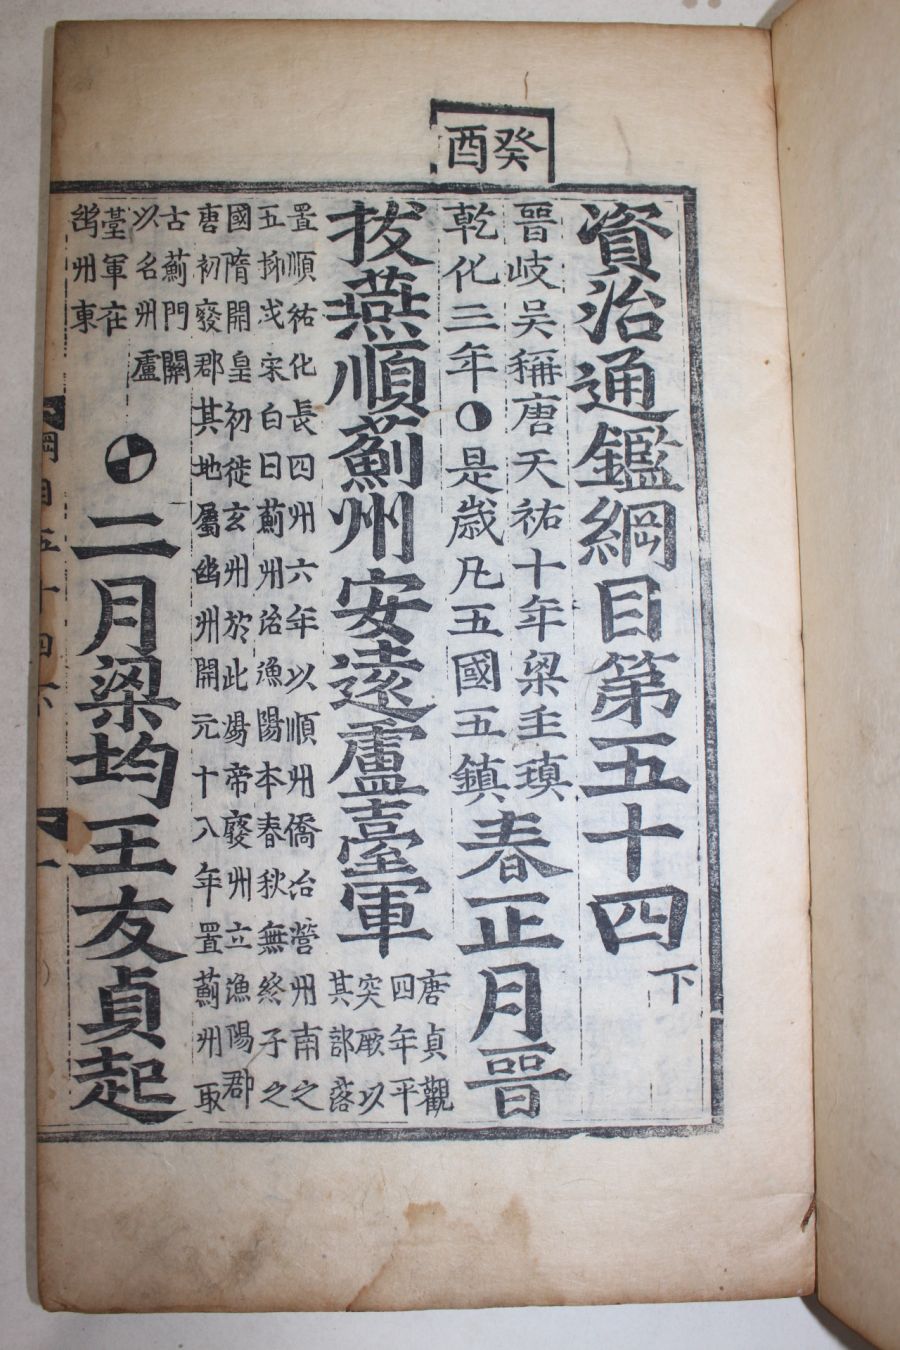 癸酉
資治通鑑綱目第五十四下
晉岐吳稱唐天祐十年梁主瑱
乾化三年●是歲凡五國五鎮
春正月晉
拔燕順薊州安遠盧臺軍
唐貞觀
四年平
突厥以
其部落
置順祐化長四州六年以順州僑治營州南之
五柳戍宋白曰薊州治漁陽本春秋無終子之
國隋開皇初徙玄州於此煬帝廢州立漁陽郡
唐初廢郡其地屬幽州開元十八年置薊州取
古薊門關
以名州盧
臺軍在
幽州東
二月梁均王友貞起
綱目五十四下
一